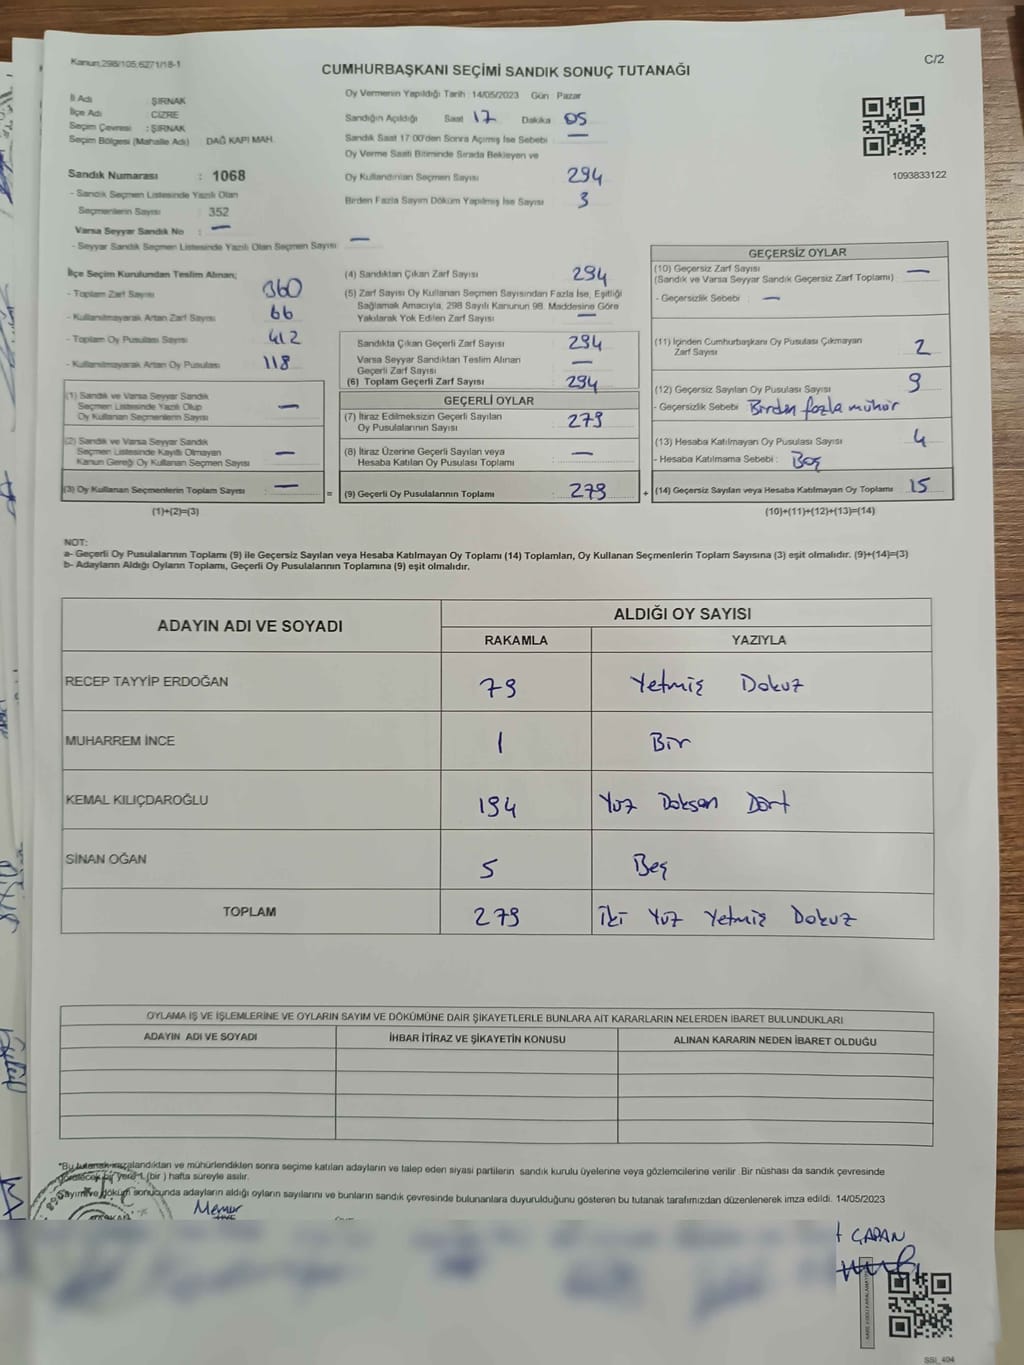 Kanun:298/105;6271/18-1
C/2
CUMHURBAŞKANI SEÇİMİ SANDIK SONUÇ TUTANAĞI
İl Adı : ŞIRNAK
İlçe Adı : CİZRE
Seçim Çevresi : ŞIRNAK
Seçim Bölgesi (Mahalle Adı) DAĞ KAPI MAH.
Sandık Numarası : 1068
- Sandık Seçmen Listesinde Yazılı Olan
Seçmenlerin Sayısı : 352
Varsa Seyyar Sandık No : —
- Seyyar Sandık Seçmen Listesinde Yazılı Olan Seçmen Sayısı : —
Oy Vermenin Yapıldığı Tarih : 14/05/2023 Gün Pazar
Sandığın Açıldığı Saat 17 Dakika 05
Sandık Saat 17:00'den Sonra Açımış İse Sebebi —
Oy Verme Saati Bitiminde Sırada Bekleyen ve
Oy Kullandırılan Seçmen Sayısı 294
Birden Fazla Sayım Döküm Yapılmış İse Sayısı 3
1093833122
İlçe Seçim Kurulundan Teslim Alınan;
- Toplam Zarf Sayısı 360
- Kullanılmayarak Artan Zarf Sayısı 66
- Toplam Oy Pusulası Sayısı 412
- Kullanılmayarak Artan Oy Pusulası 118
(1) Sandık ve Varsa Seyyar Sandık
Seçmen Listesinde Yazılı Olup
Oy Kullanan Seçmenlerin Sayısı —
(2) Sandık ve Varsa Seyyar Sandık
Seçmen Listesinde Kayıtlı Olmayan
Kanun Gereği Oy Kullanan Seçmen Sayısı —
(3) Oy Kullanan Seçmenlerin Toplam Sayısı : —
(1)+(2)=(3)
=
(4) Sandıktan Çıkan Zarf Sayısı 294
(5) Zarf Sayısı Oy Kullanan Seçmen Sayısından Fazla İse, Eşitliği
Sağlamak Amacıyla, 298 Sayılı Kanunun 98. Maddesine Göre
Yakılarak Yok Edilen Zarf Sayısı —
Sandıkta Çıkan Geçerli Zarf Sayısı 294
Varsa Seyyar Sandıktan Teslim Alınan
Geçerli Zarf Sayısı —
(6) Toplam Geçerli Zarf Sayısı 294
GEÇERLİ OYLAR
(7) İtiraz Edilmeksizin Geçerli Sayılan
Oy Pusulalarının Sayısı 279
(8) İtiraz Üzerine Geçerli Sayılan veya
Hesaba Katılan Oy Pusulası Toplamı —
(9) Geçerli Oy Pusulalarının Toplamı 279
+
GEÇERSİZ OYLAR
(10) Geçersiz Zarf Sayısı
(Sandık ve Varsa Seyyar Sandık Geçersiz Zarf Toplamı) —
- Geçersizlik Sebebi : —
(11) İçinden Cumhurbaşkanı Oy Pusulası Çıkmayan
Zarf Sayısı 2
(12) Geçersiz Sayılan Oy Pusulası Sayısı 9
- Geçersizlik Sebebi Birden fazla mühür
(13) Hesaba Katılmayan Oy Pusulası Sayısı 4
- Hesaba Katılmama Sebebi : Boş
(14) Geçersiz Sayılan veya Hesaba Katılmayan Oy Toplamı 15
(10)+(11)+(12)+(13)=(14)
NOT:
a- Geçerli Oy Pusulalarının Toplamı (9) ile Geçersiz Sayılan veya Hesaba Katılmayan Oy Toplamı (14) Toplamları, Oy Kullanan Seçmenlerin Toplam Sayısına (3) eşit olmalıdır. (9)+(14)=(3)
b- Adayların Aldığı Oyların Toplamı, Geçerli Oy Pusulalarının Toplamına (9) eşit olmalıdır.
ADAYIN ADI VE SOYADI
ALDIĞI OY SAYISI
RAKAMLA YAZIYLA
RECEP TAYYİP ERDOĞAN 79 Yetmiş Dokuz
MUHARREM İNCE 1 Bir
KEMAL KILIÇDAROĞLU 194 Yüz Doksan Dört
SİNAN OĞAN 5 Beş
TOPLAM 279 İki Yüz Yetmiş Dokuz
OYLAMA İŞ VE İŞLEMLERİNE VE OYLARIN SAYIM VE DÖKÜMÜNE DAİR ŞİKAYETLERLE BUNLARA AİT KARARLARIN NELERDEN İBARET BULUNDUKLARI
ADAYIN ADI VE SOYADI İHBAR İTİRAZ VE ŞİKAYETİN KONUSU ALINAN KARARIN NEDEN İBARET OLDUĞU
*Bu tutanak imzalandıktan ve mühürlendikten sonra seçime katılan adayların ve talep eden siyasi partilerin sandık kurulu üyelerine veya gözlemcilerine verilir. Bir nüshası da sandık çevresinde
görülecek bir yere 1 (bir ) hafta süreyle asılır.
Sayım ve döküm sonucunda adayların aldığı oyların sayılarını ve bunların sandık çevresinde bulunanlara duyurulduğunu gösteren bu tutanak tarafımızdan düzenlenerek imza edildi. 14/05/2023
Memur
ÇAPAN
SSİ_404